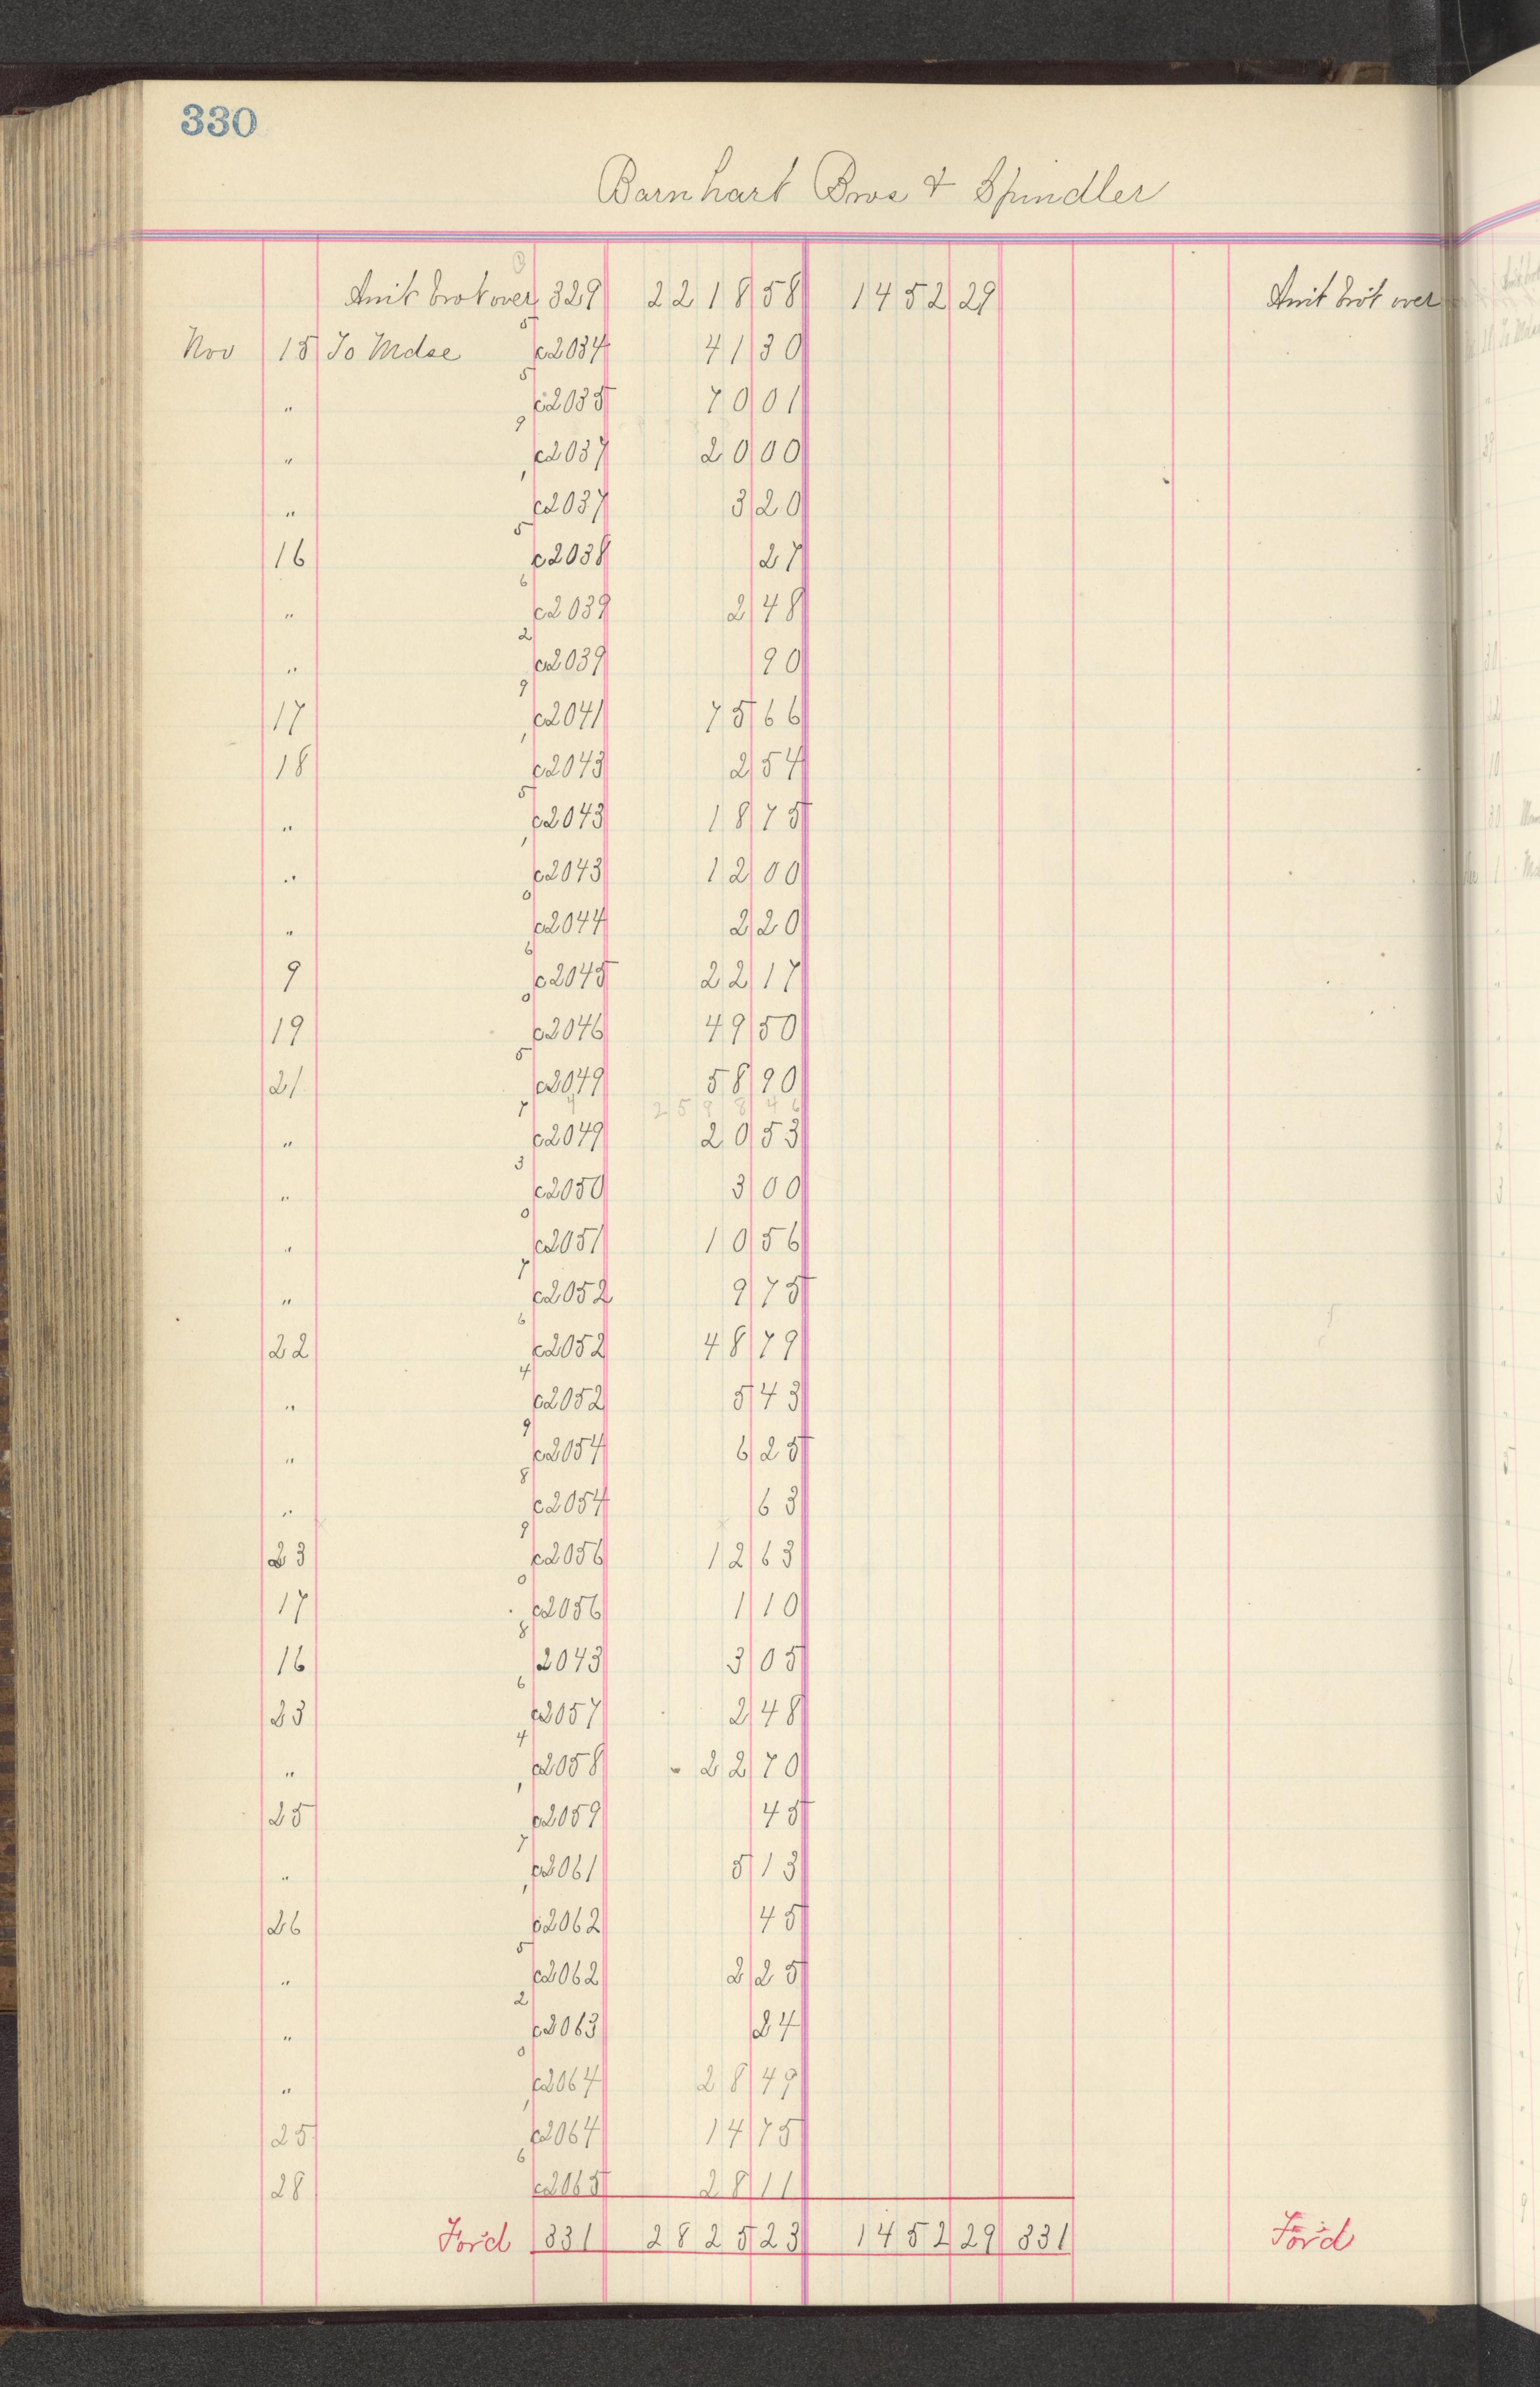 330
Barnhart Bros & Spindler
Amt brot over 329 2218 58 1452 29 Amt brot over
Nov 15 To Mdse c2034 41 30
" c2035 70 01
" c2037 20 00
" c2037 3 20
16 c2038 27
" c2039 2 48
" c2039 90
17 c2041 75 66
18 c2043 2 54
" c2043 18 75
" c2043 12 00
" c2044 2 20
9 c2045 22 17
19 c2046 49 50
21 c2049 58 90
2598 46
" c2049 20 53
" c2050 3 00
" c2051 10 56
" c2052 9 75
22 c2052 48 79
" c2052 5 43
" c2054 6 25
" c2054 63
23 c2056 12 63
17 c2056 1 10
16 2043 3 05
23 c2057 2 48
" c2058 22 70
25 c2059 45
" c2061 5 13
26 c2062 45
" c2062 2 25
" c2063 24
" c2064 28 49
25 c2064 14 75
28 c2065 28 11
For'd 331 2825 23 1452 29 331 For'd